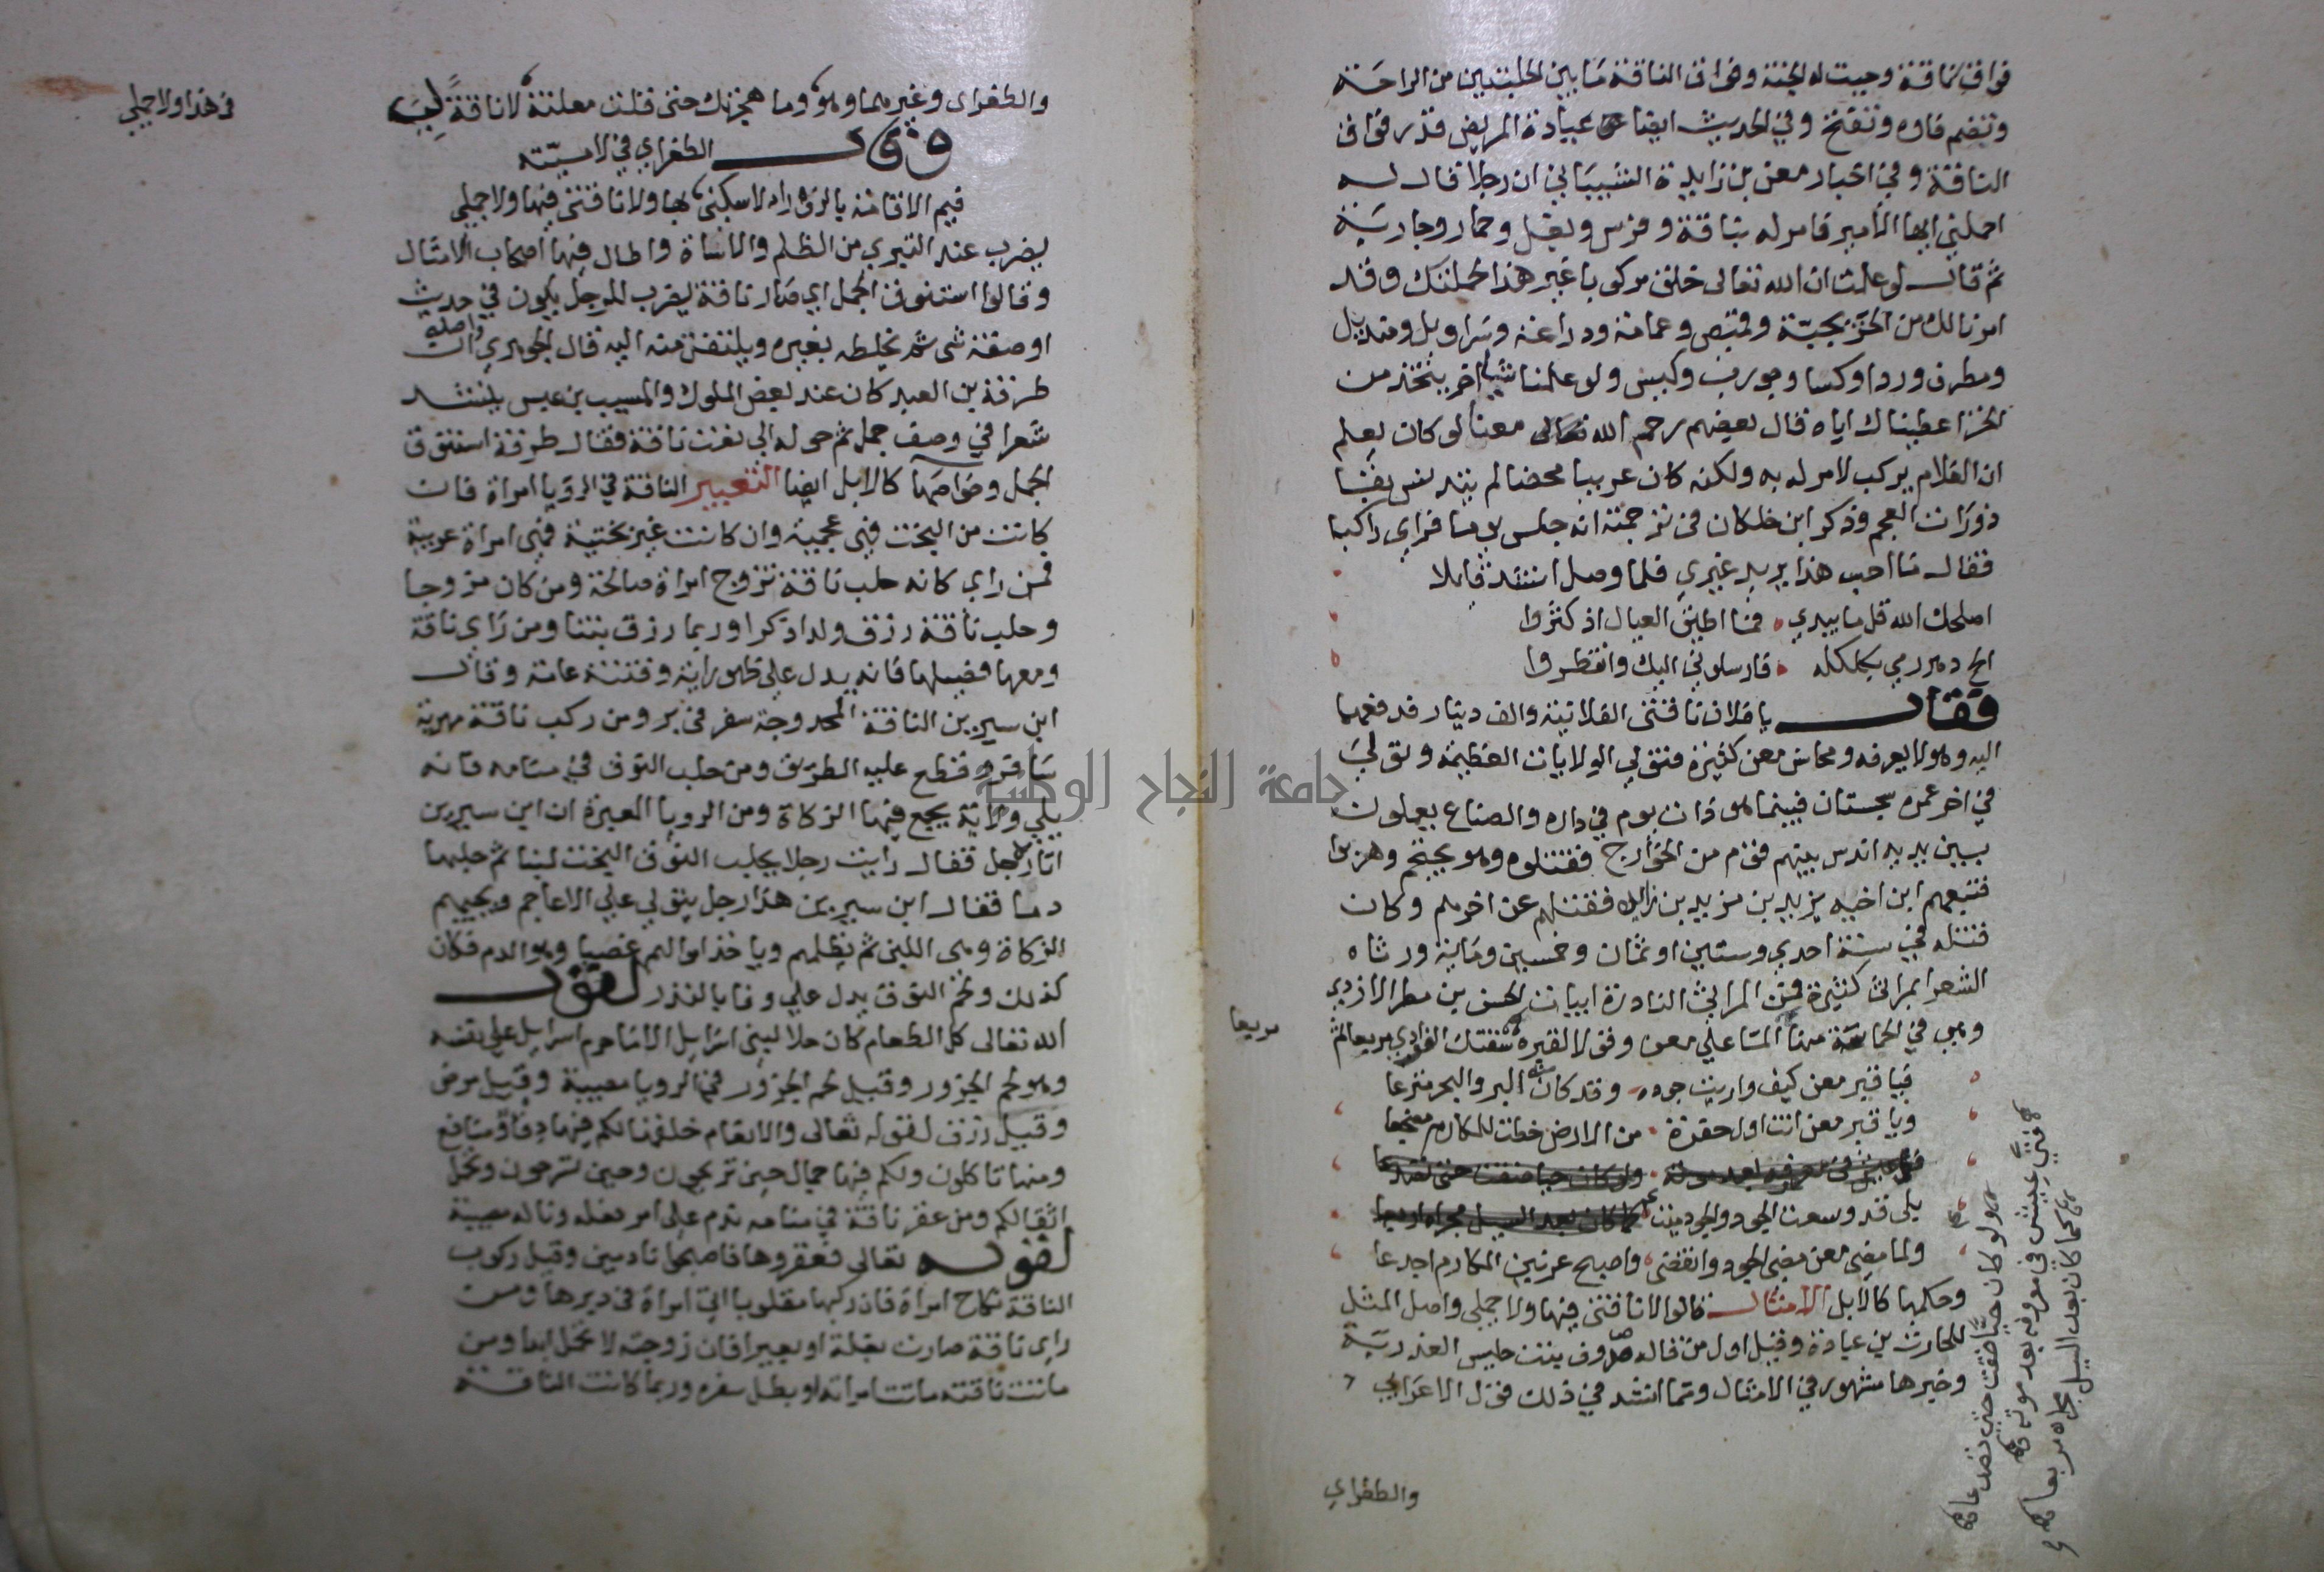 فواق ناقة وجبت له الجنة وفواق الناقة ما بين الحلبتين من الراحة
وتضم فاوه وتفتح وفي الحديث ايضا عيادة المريض قدر فواق
الناقة وفي اخبار معن بن زايدة الشيباني ان رجلا قال له
احملني ايها الامير فامر له بناقة وفرس وبغل وحمار وجارية
ثم قال لو علمت ان الله تعالى خلق مركوبا غير هذا لحملتك وقد
امرنا لك من الخز بجبة وقميص وعمامة ودراعة وسراويل ومنديل
ومطرف وردا وكسا وجورب وكيس ولو علمنا شيا اخر يتخذ من
الخز اعطيناك اياه قال بعضهم رحم الله تعالى معنا لو كان يعلم
ان الغلام يركب لامر له به ولكنه كان عربيا محضا لم يتدنس بقيا
ذورات العجم وذكر ابن خلكان في ترجمته انه جلس يوما فراي راكبا
فقال ما احب هذا يريد غيري فلما وصل انشد قايلا
اصلحك الله قل ما بيدي فما اطيق العيال اذ كثروا
الح دهر رمي بكلكله فارسلوني اليك وانتظروا
فقال يا فلان ناقتي الفلانية والف دينار فدفعها
اليه وهو لا يعرفه ومحاسن معن كثيرة فتولي الولايات العظيمة وتولي
في اخر عمره سجستان فبينما هو ذات يوم في داره والصناع يعملون
بين يديه اندس بينهم قوم من الخوارج فقتلوه وهو يحتجم وهربوا
فتبعهم ابن اخيه يزيد بن مزيد بن زايده فقتلهم عن اخرهم وكان
قتله في سنة احدي وستين او ثمان وخمسين وماية ورثاه
الشعرا بمراث كثيرة فمن المراثي النادرة ابيات الحسن بن مطر الازدي
وهي في الحماسة منها المسا علي معن وقولا لقبره سقتك الغوادي مربعا ثم
مربعا
فيا قبر معن كيف واريت جوده وقد كان منه البر والبحر مترعا
ويا قبر معن انت اول حفرة من الارض خطت للمكارم مضجعا
بلي قد وسعت الجود والجود ميت
ولوكان حيا ضقت حتى تصدعا
فتي عيش في معروفه بعد موته
كما كان بعد السيل مجراه مربعا
ولما مضي معن مضي الجود وانقضي واصبح عرنين المكارم اجدعا
وحكمها كالابل الامثال قالوا لا ناقتي فيها ولا جملي واصل المثل
للحارث بن عبادة وقيل اول من قاله صدوف بنت حليس العذرية
وخبرها مشهور في الامثال ومما انشد في ذلك قول الاعرابي
والطغراي
والطغراي وغيرهما وهو وما هجرتك حتى قلت معلنة لا ناقة لي
في هذا ولا جملي
وقال الطغراي في لاميته
فيم الاقامة بالزوراء لا سكني بها ولا ناقتي فيها ولا جملي
يضرب عند التبري من الظلم والاساة واطال فيها اصحاب الامثال
وقالوا استنوق الجمل اي صار ناقة يضرب للرجل يكون في حديث
او صفة شي ثم يخلطه بغيره وينتقل منه اليه قال الجوهري واصله ان
طرفة بن العبد كان عند بعض الملوك والمسيب بن عيس ينشد
شعرا في وصف جمل ثم حوله الي نعت ناقة فقال طرفة استنوق
الجمل وخواصها كالابل ايضا التعبير الناقة في الرويا امراة فان
كانت من البخت فهي عجمية وان كانت غير بختية فهي امراة عربية
فمن راي كانه حلب ناقة تزوج امراة صالحة ومن كان متزوجا
وحلب ناقة رزق ولدا ذكرا وربما رزق بنتا ومن راي ناقة
ومعها فصيلها فانه يدل علي ظهور اية وفتنة عامة وقال
ابن سيرين الناقة المحدوجة سفر في بر ومن ركب ناقة مهرية
سافر وقطع عليه الطريق ومن حلب النوق في منامه فانه
يلي ولاية يجمع فيها الزكاة ومن الرويا المعبرة ان ابن سيرين
اتاه رجل فقال رايت رجلا يحلب النوق البخت لبنا ثم حلبها
دما فقال ابن سيرين هذا رجل يتولي علي الاعاجم ويجبيهم
الزكاة وهي اللبن ثم يظلمهم وياخذ اموالهم غصبا وهو الدم فكان
كذلك ولحم النوق يدل علي وفا بالنذر لقول
الله تعالى كل الطعام كان حلا لبني اسرايل الا ما حرم اسرايل علي نفسه
وهو لحم الجزور وقيل لحم الجزور في الرويا مصيبة وقيل مرض
وقيل رزق لقوله تعالى والانعام خلقها لكم فيها دفا ومنافع
ومنها تاكلون ولكم فيها جمال حين تريحون وحين تسرحون وتحمل
اثقالكم ومن عقر ناقة في منامه ندم على امر فعله وناله مصيبة
لقوله تعالى فعقروها فاصبحوا نادمين وقيل ركوب
الناقة نكاح امراة فان ركبها مقلوبا اتي امراة في دبرها ومن
راي ناقة صارت بغلة او بعيرا فان زوجته لا تحمل ابدا ومن
ماتت ناقته ماتت امراته او بطل سفره وربما كانت الناقة
جامعة النجاح الوطنية